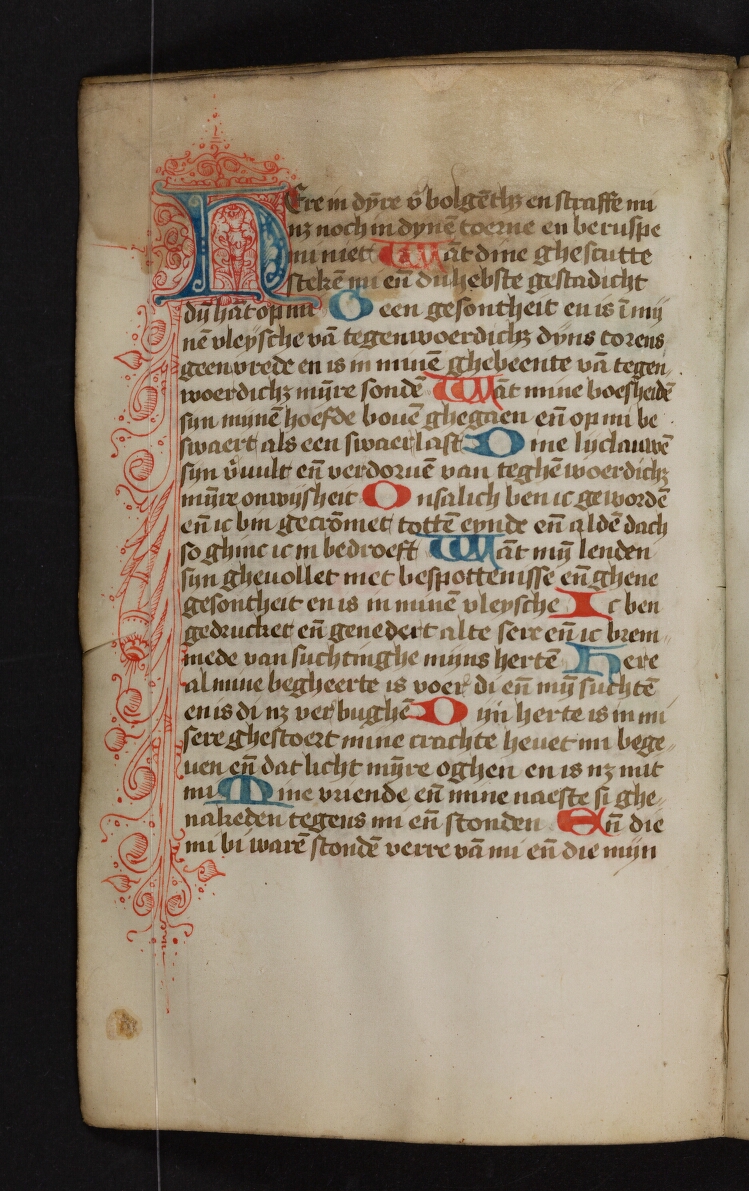 HEre in dÿre v̄bolgēthꝫ en straffe mi
nꝫ noch in dynē toerne en beruspe
mi niett Wāt dine ghescutte
stekē mi en̄ du hebste gestadicht
dij hāt op mi Geen gesontheit en is ī mÿ
nē vleÿsche vā tegenwoerdichꝫ dÿns torens
geen vrede en is in minē ghebeente vā tegen
woerdichꝫ mÿre sondē Wāt mine boesheidē
sijn mijnē hoefde bouē ghegaen en̄ op mi be
swaert als een swaer last Dine lijclauwē
sijn v̄uult en̄ verdoruē van teghēwoerdichꝫ
mÿre onwijsheit Onsalich ben ic gewordē
en̄ ic bin gecrōmet tottē eynde en̄ al dē dach
so ghinc ic in bedroeft Wāt mijn̄ lenden
sijn gheuollet met bespottenisse en̄ ghene
gesontheit en is in minē vleÿsche Ic ben
gedrucket en̄ genedert al te sere en̄ ic brem
mede van suchtinghe mijns hertē Here
al mine begheerte is voer di en̄ mÿ suchtē
en is di nꝫ verbughē Mijn herte is in mi
sere ghestoert mine crachte heuet mi bege
uen en̄ dat licht mÿre oghen en is nꝫ mit
mi Mine vriende en̄ mine naeste si ghe
nakeden tegens mi en̄ stonden En̄ die
mi bi warē stondē verre vā mi en̄ die mijn